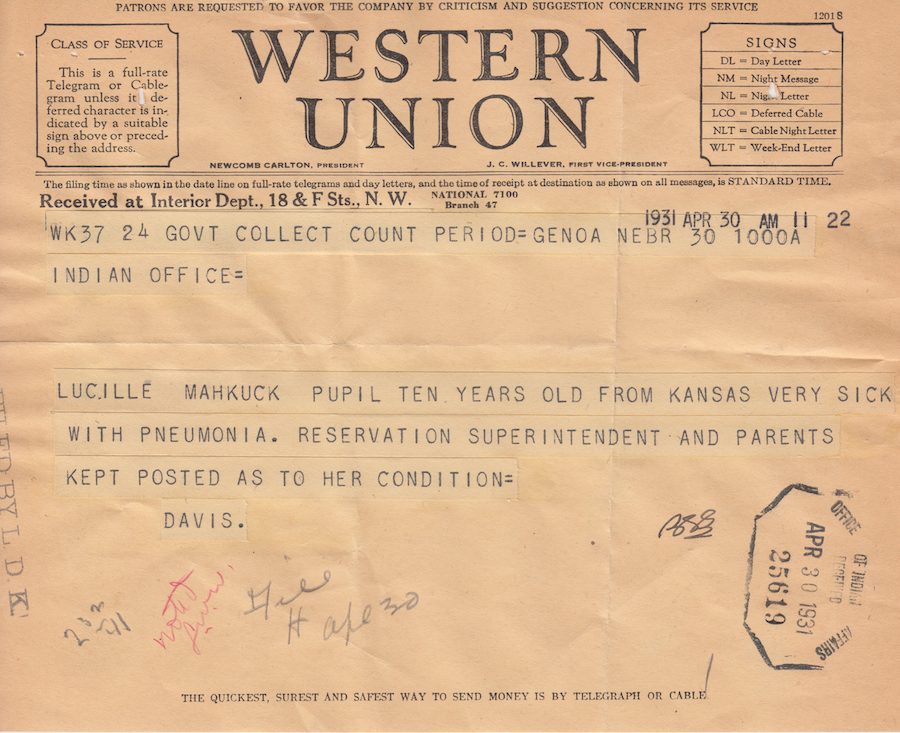 PATRONS ARE REQUESTED TO FAVOR THE COMPANY BY CRITICISM AND SUGGESTION CONCERNING ITS SERVICE
1201S
CLASS OF SERVICE
This is a full-rate
Telegram or Cable-
gram unless its de-
ferred character is in-
dicated by a suitable
sign above or preced-
ing the address.
WESTERN
UNION
NEWCOMB CARLTON, PRESIDENT
J. C. WILLEVER, FIRST VICE-PRESIDENT
SIGNS
DL = Day Letter
NM = Night Message
NL = Night Letter
LCO = Deferred Cable
NLT = Cable Night Letter
WLT = Week-End Letter
The filing time as shown in the date line on full-rate telegrams and day letters, and the time of receipt at destination as shown on all messages, is STANDARD TIME.
Received at Interior Dept., 18 & F Sts., N. W.
NATIONAL 7100
Branch 47
1931 APR 30 AM 11 22
WK37 24 GOVT COLLECT COUNT PERIOD=GENOA NEBR 30 1000A
INDIAN OFFICE=
LUCILLE MAHKUCK PUPIL TEN YEARS OLD FROM KANSAS VERY SICK
WITH PNEUMONIA. RESERVATION SUPERINTENDENT AND PARENTS
KEPT POSTED AS TO HER CONDITION=
DAVIS.
FILED BY L. D. K.
File
OFFICE OF INDIAN AFFAIRS
RECEIVED
APR 30 1931
25619
THE QUICKEST, SUREST AND SAFEST WAY TO SEND MONEY IS BY TELEGRAPH OR CABLE